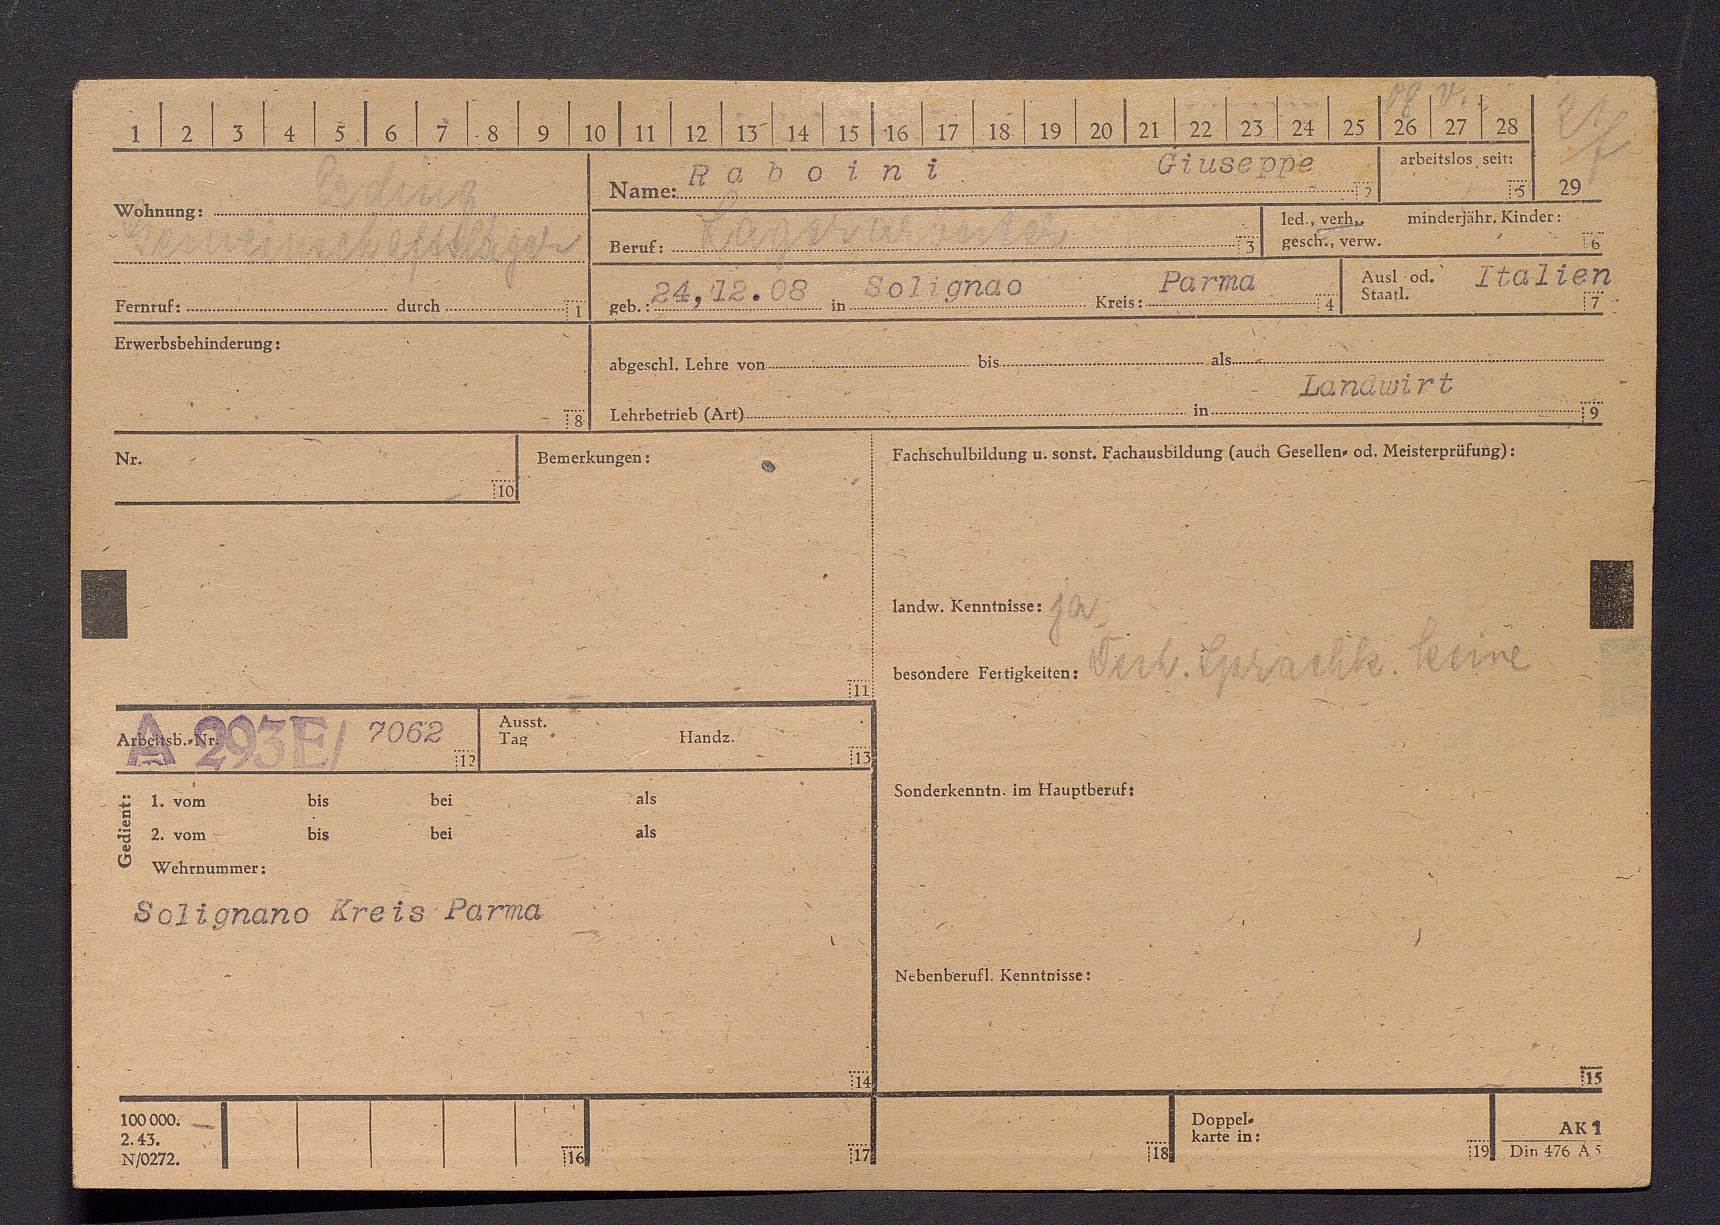 08 V.
1 2 3 4 5 6 7 8 9 10 11 12 13 14 15 16 17 18 19 20 21 22 23 24 25 26 27 28
29
Wohnung: Erding
Gemeinschaftslager
Fernruf: durch 1
Name: Raboini Giuseppe 2
arbeitslos seit: 5
Beruf: Lagerarbeiter 3
led., verh., minderjähr. Kinder:
gesch., verw. 6
geb.: 24,12.08 in Solignao Kreis: Parma 4
Ausl od. Italien
Staatl. 7
Erwerbsbehinderung:
8
abgeschl. Lehre von bis als
Landwirt
Lehrbetrieb (Art) in 9
Nr.
10
Bemerkungen:
11
Fachschulbildung u. sonst. Fachausbildung (auch Gesellen- od. Meisterprüfung):
landw. Kenntnisse: ja
besondere Fertigkeiten: Sprachk. keine
Arbeitsb.-Nr. A 293E/ 7062 12
Ausst.
Tag Handz. 13
Gedient:
1. vom bis bei als
2. vom bis bei als
Wehrnummer:
Solignano Kreis Parma
14
Sonderkenntn. im Hauptberuf:
Nebenberufl. Kenntnisse:
15
100 000.
2. 43.
N/0272.
16
17
18
Doppel-
karte in: 19
AK 1
Din 476 A 5